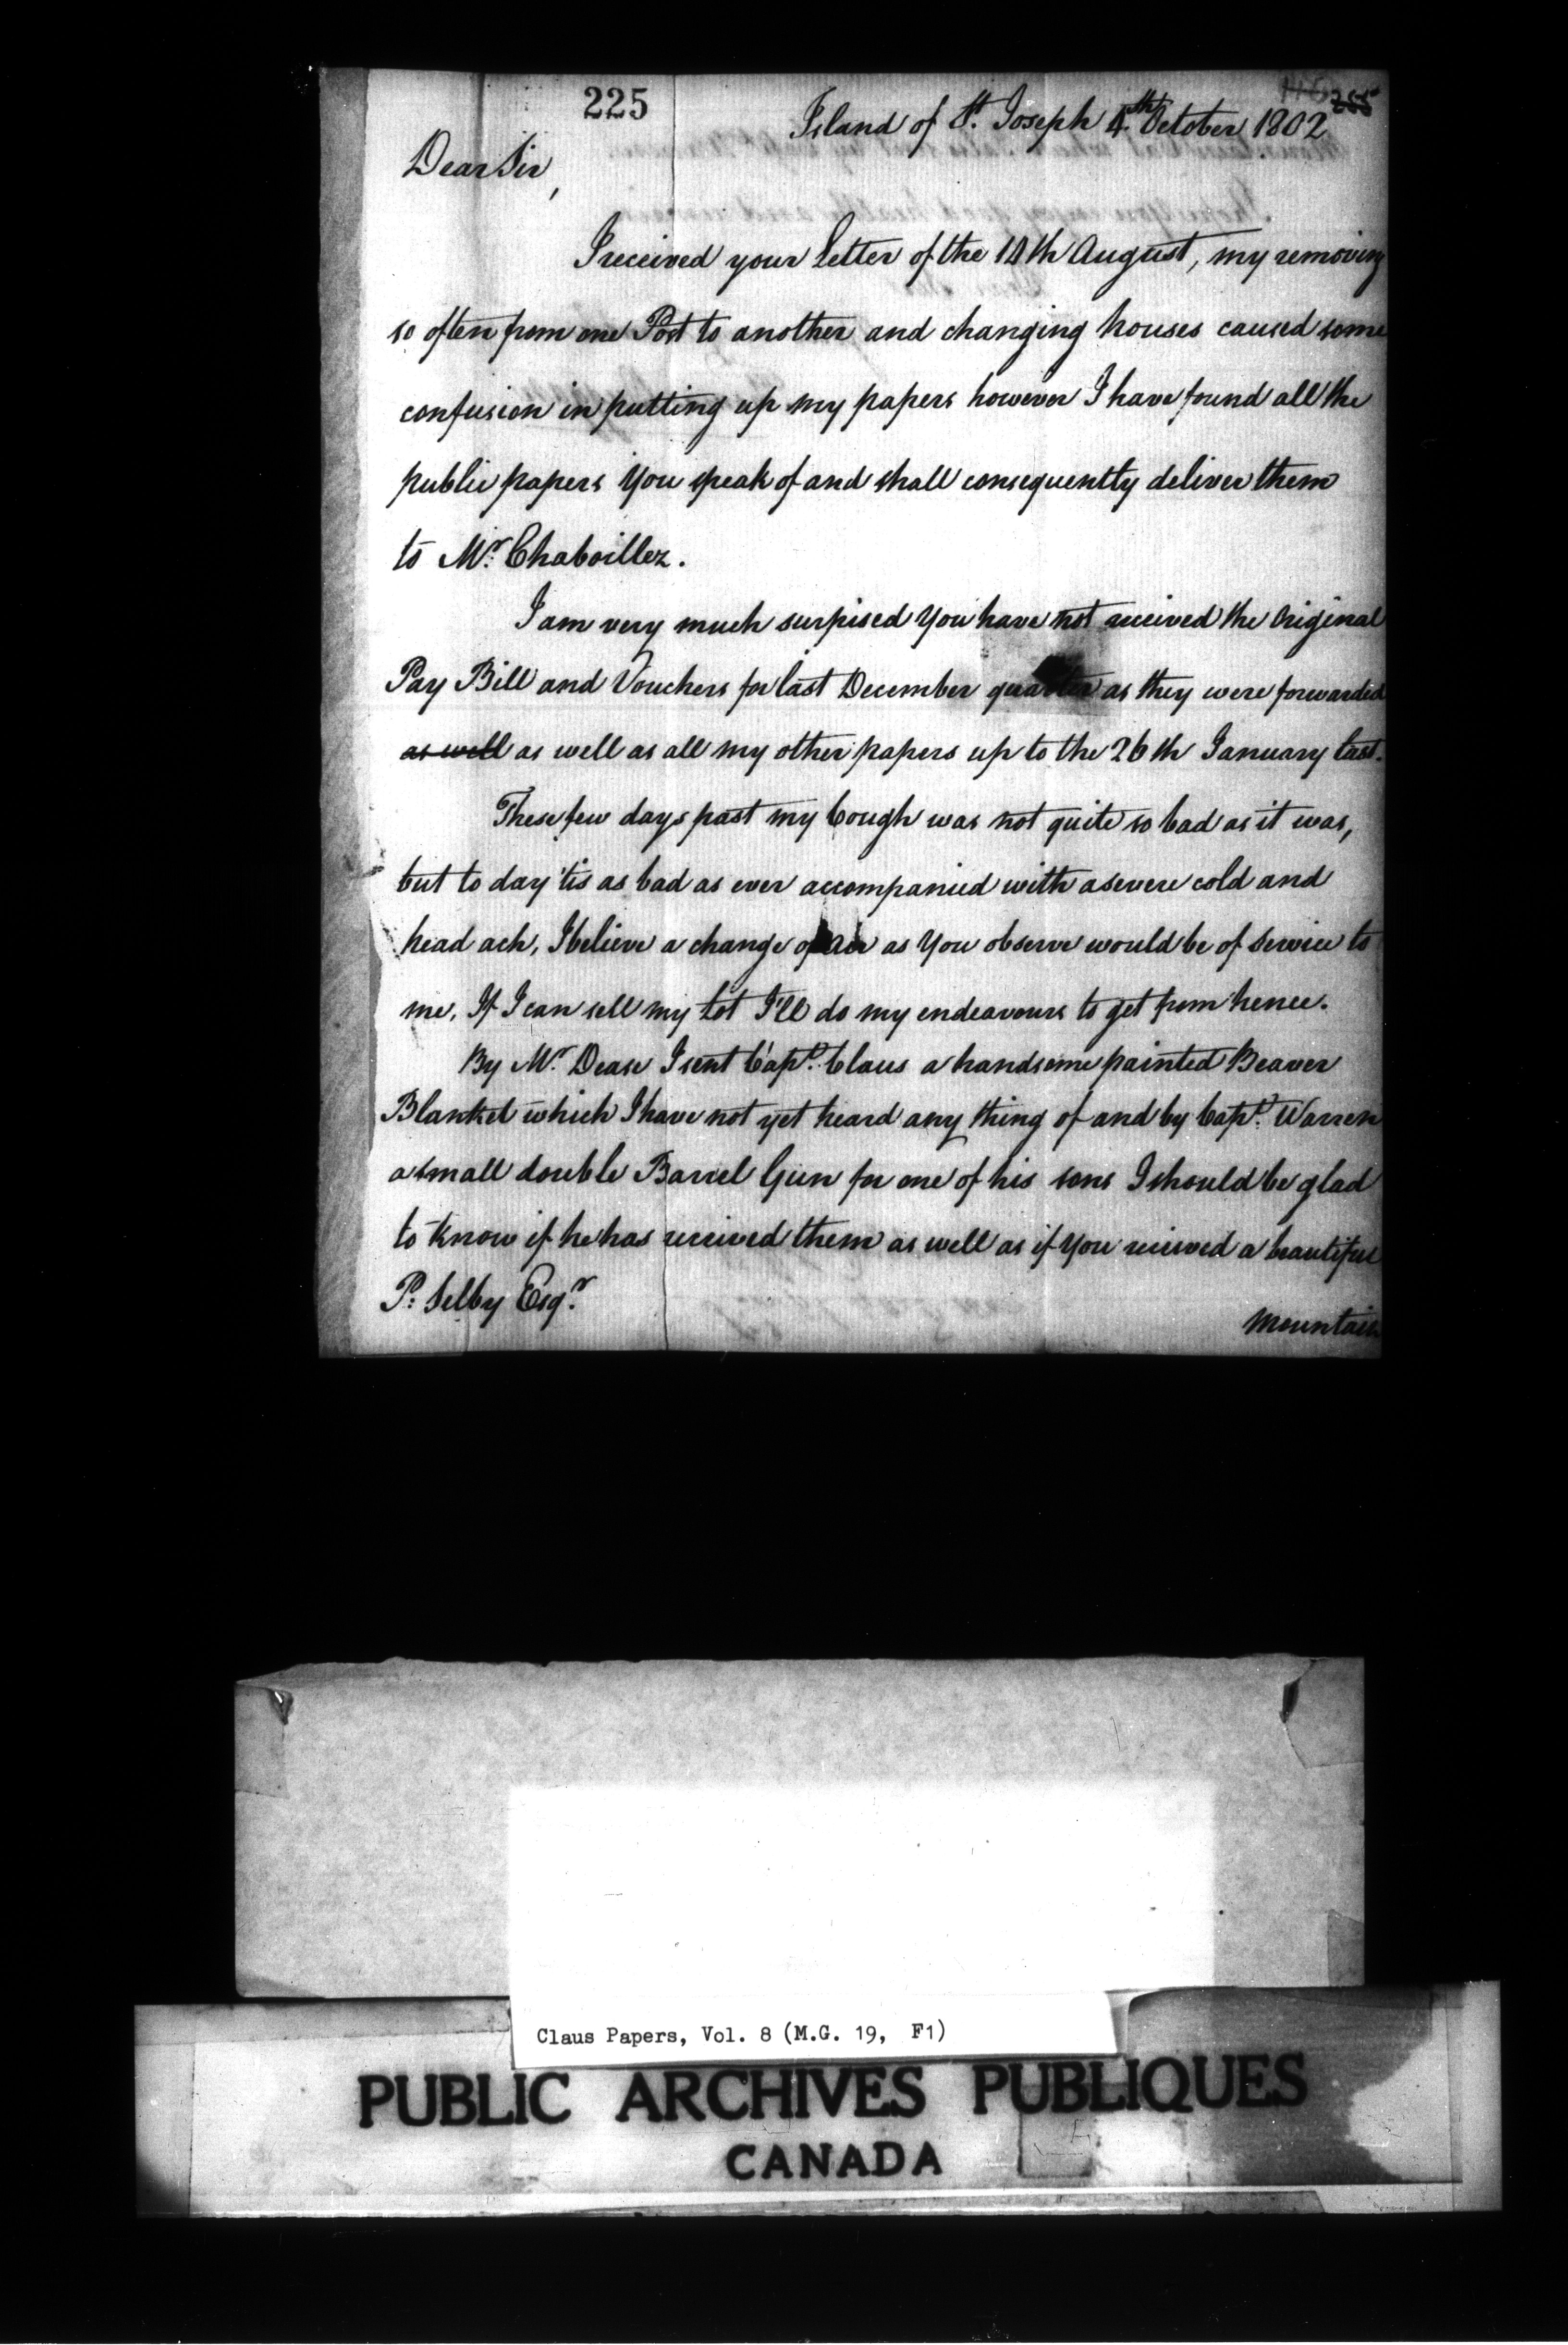 225
Island of St. Joseph 4th October 1802
Dear Sir,
I received your Letter of the 14th August, my removing
so often from one Post to another and changing houses caused some
confusion in putting up my papers however I have found all the
public papers you speak of and shall consequently deliver them
to Mr. Chaboillez.
I am very much surpised you have not received the Original
Pay Bill and Vouchers for last December quarter as they were forwarded
as well as well as all my other papers up to the 26th January last.
These few days past my Cough was not quite so bad as it was,
but to day 'tis as bad as ever accompanied with a severe cold and
head ach, I believe a change of air as you observe would be of service to
me. If I can sell my Lot I'll do my endeavours to get from hence.
By Mr. Dease I sent Capt. Claus a handsome painted Beaver
Blanket which I have not yet heard any thing of and by Capt. Warren
a small double Barrel Gun for one of his sons I should be glad
to know if he has received them as well as if you reicived a beautiful
P: Selby Esqr.
mountain
Claus Papers, Vol. 8 (M.G. 19, F1)
PUBLIC ARCHIVES PUBLIQUES
CANADA